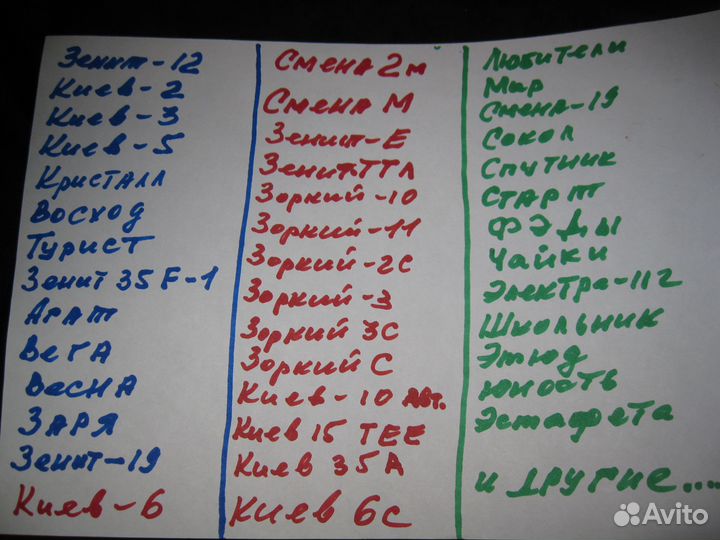 Зенит-12
Киев-2
Киев-3
Киев-5
Кристалл
Восход
Турист
Зенит 35 F-1
Агат
Вега
Весна
Заря
Зенит-19
Киев-6
Смена 2м
Смена М
Зенит-Е
Зенит TTЛ
Зоркий-10
Зоркий-11
Зоркий-2С
Зоркий-3
Зоркий 3С
Зоркий С
Киев-10 Авт.
Киев 15 TEE
Киев 35 А
Киев 6С
Любители
Мир
Смена-19
Сокол
Спутник
Старт
ФЭДы
Чайки
Электра-112
Школьник
Этюд
Юность
Эстафета
и другие.....
Avito